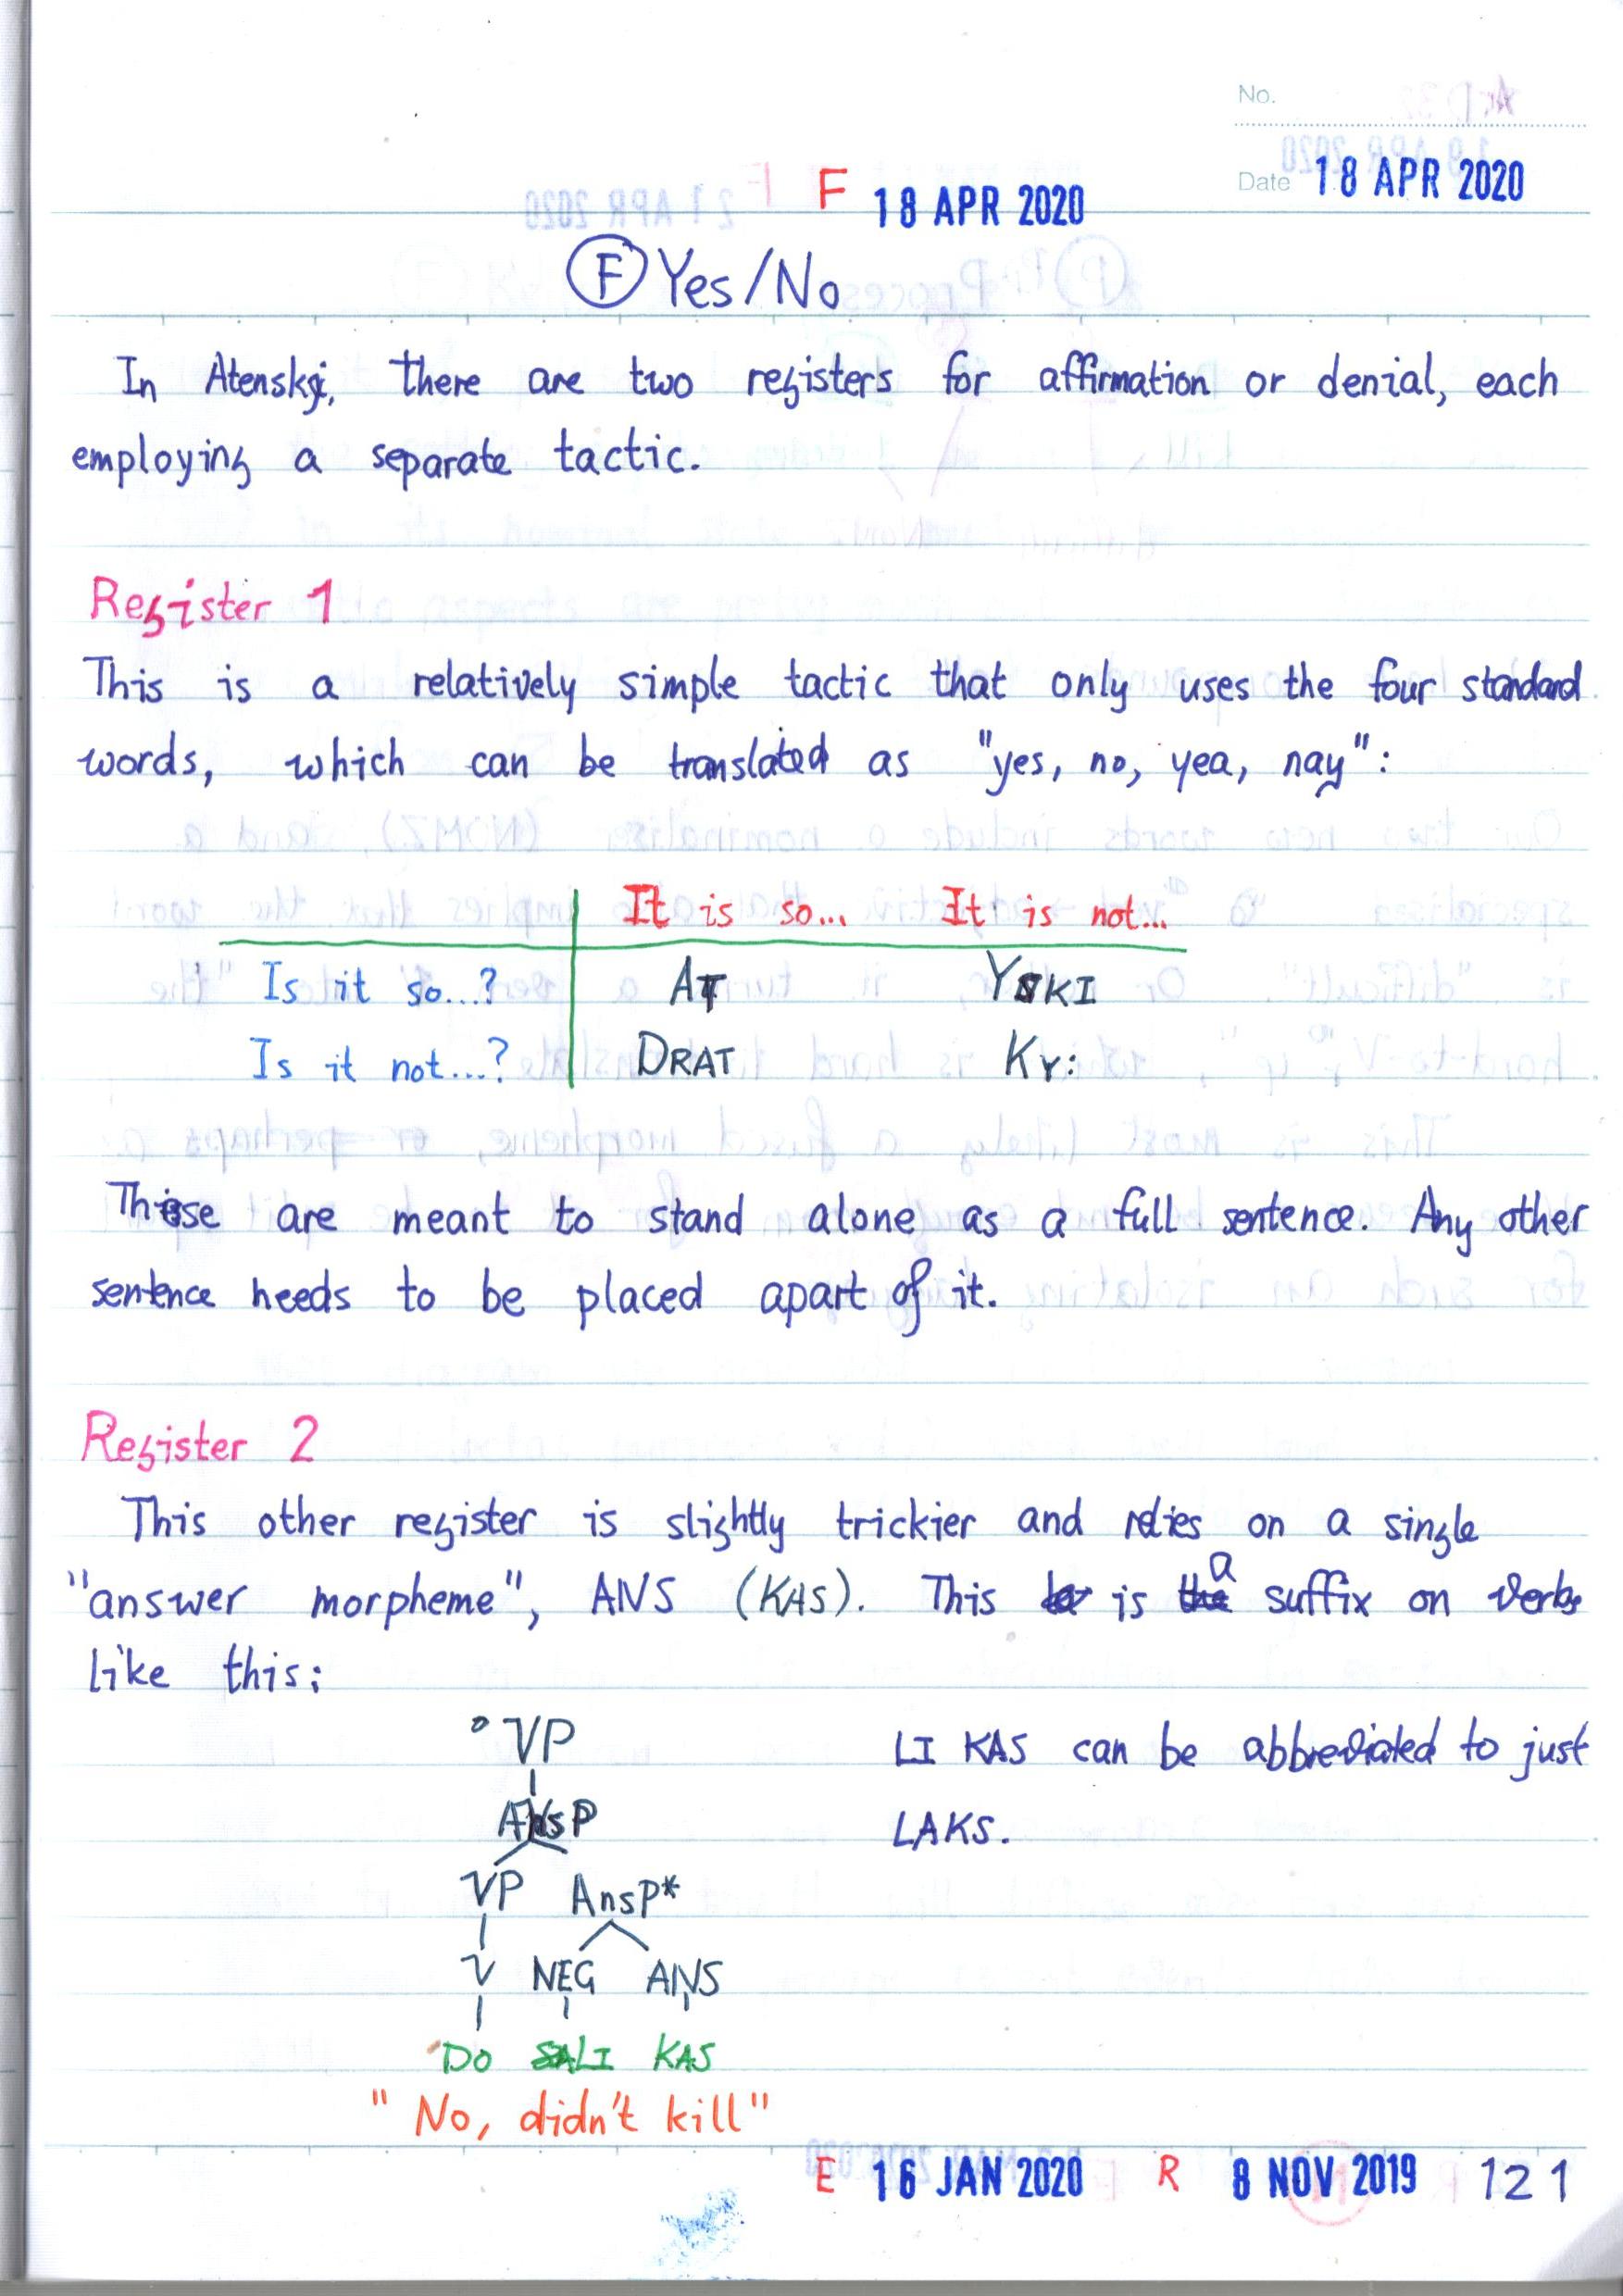 No.
Date 18 APR 2020
F 18 APR 2020
F Yes/No
In Atenskji, there are two registers for affirmation or denial, each
employing a separate tactic.
Register 1
This is a relatively simple tactic that only uses the four standard
words, which can be translated as "yes, no, yea, nay":
It is so... It is not...
Is it so...? AT YSKI
Is it not...? DRAT KY:
These are meant to stand alone as a full sentence. Any other
sentence needs to be placed apart of it.
Register 2
This other register is slightly trickier and relies on a single
"answer morpheme", ANS (KAS). This is a suffix on verbs
like this:
°VP
LI KAS can be abbreviated to just
AnsP
LAKS.
VP AnsP*
V NEG ANS
DO LI KAS
"No, didn't kill"
E 16 JAN 2020 R 8 NOV 2019 121